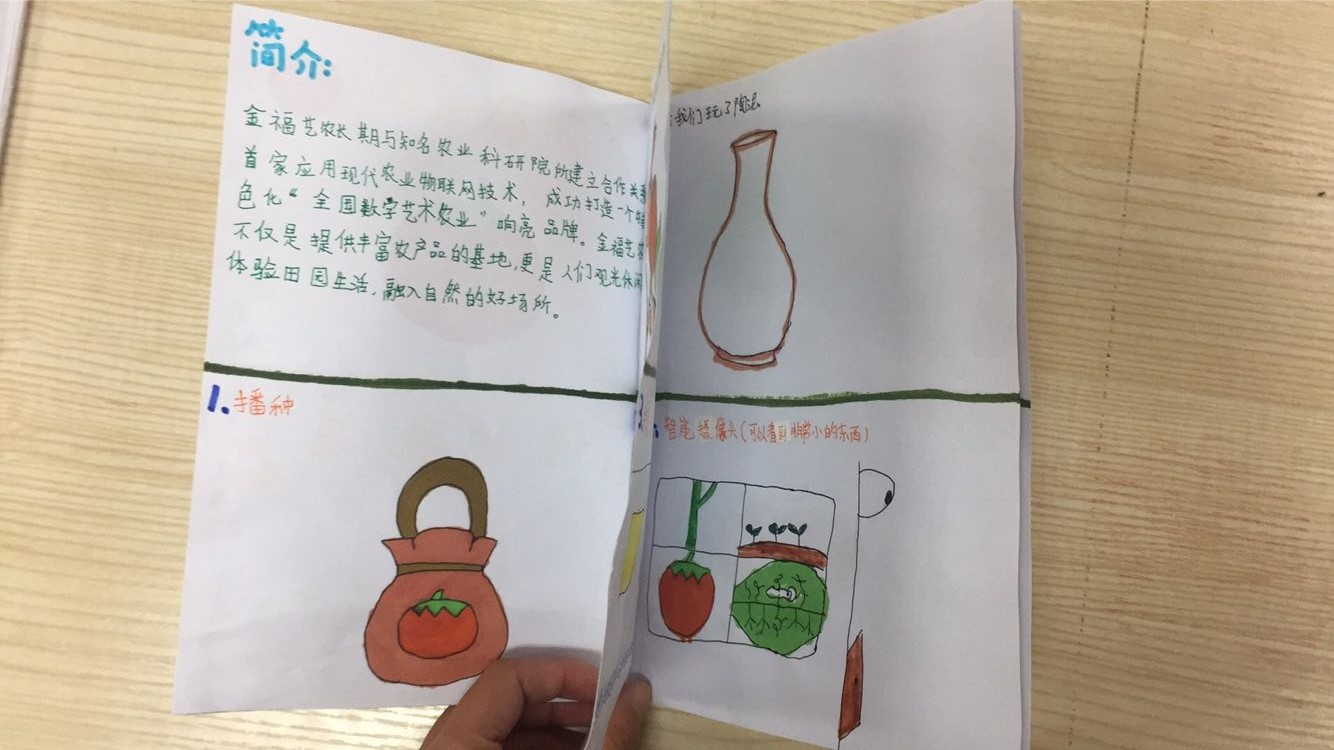 简介:
金福艺农长期与知名农业科研院所建立合作关
首家应用现代农业物联网技术，成功打造一个
色化“全园数字艺术农业”响亮品牌。金福艺农
不仅是提供丰富农产品的基地,更是人们观光休闲
体验田园生活,融入自然的好场所。
1.播种
我们玩了陶泥
智能摄像头(可以看到非常小的东西)